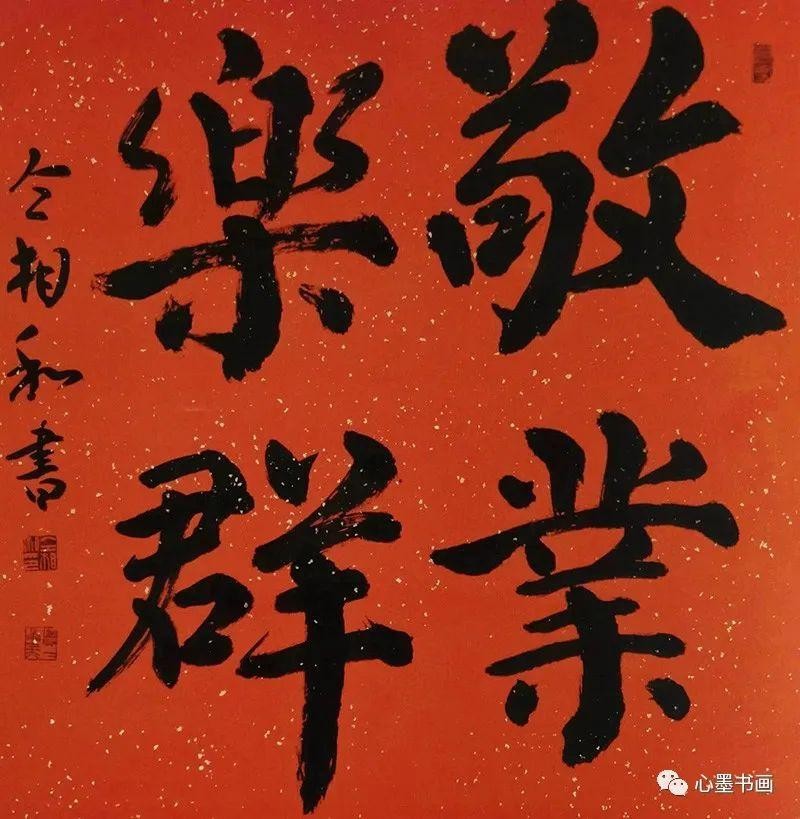 敬業
樂群
仝相和書
心墨书画